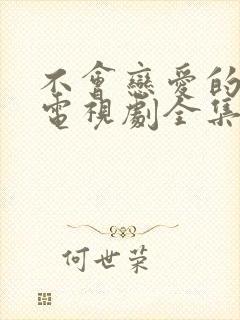 不會戀愛的
電視劇全集
何世荣